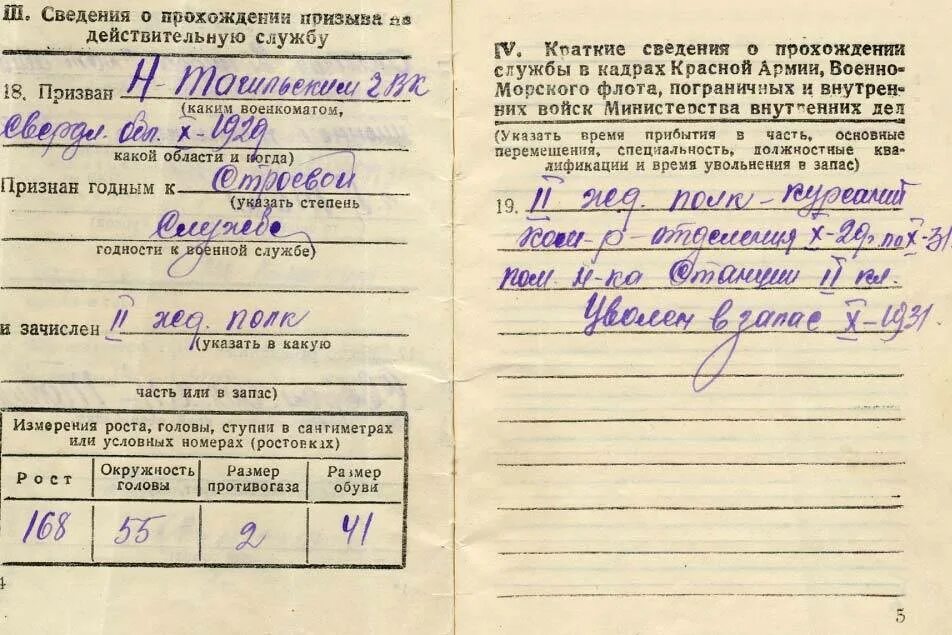 III. Сведения о прохождении призыва на
действительную службу
18. Призван Н-Тагильским 2 ВК
(каким военкоматом,
Свердл. обл. X-1929
какой области и когда)
Признан годным к Строевой
(указать степень
Службе
годности к военной службе)
и зачислен II жд. полк
(указать в какую
часть или в запас)
Измерения роста, головы, ступни в сантиметрах
или условных номерах (ростовках)
Рост Окружность головы Размер противогаза Размер обуви
168 55 2 41
4
IV. Краткие сведения о прохождении
службы в кадрах Красной Армии, Военно-
Морского флота, пограничных и внутрен-
них войск Министерства внутренних дел
(Указать время прибытия в часть, основные
перемещения, специальность, должностные ква-
лификации и время увольнения в запас)
19. II жд. полк - курсант
ком-р - отделения X-29г. по X-31
пом. н-ка Станции II кл.
Уволен в запас X-1931
5